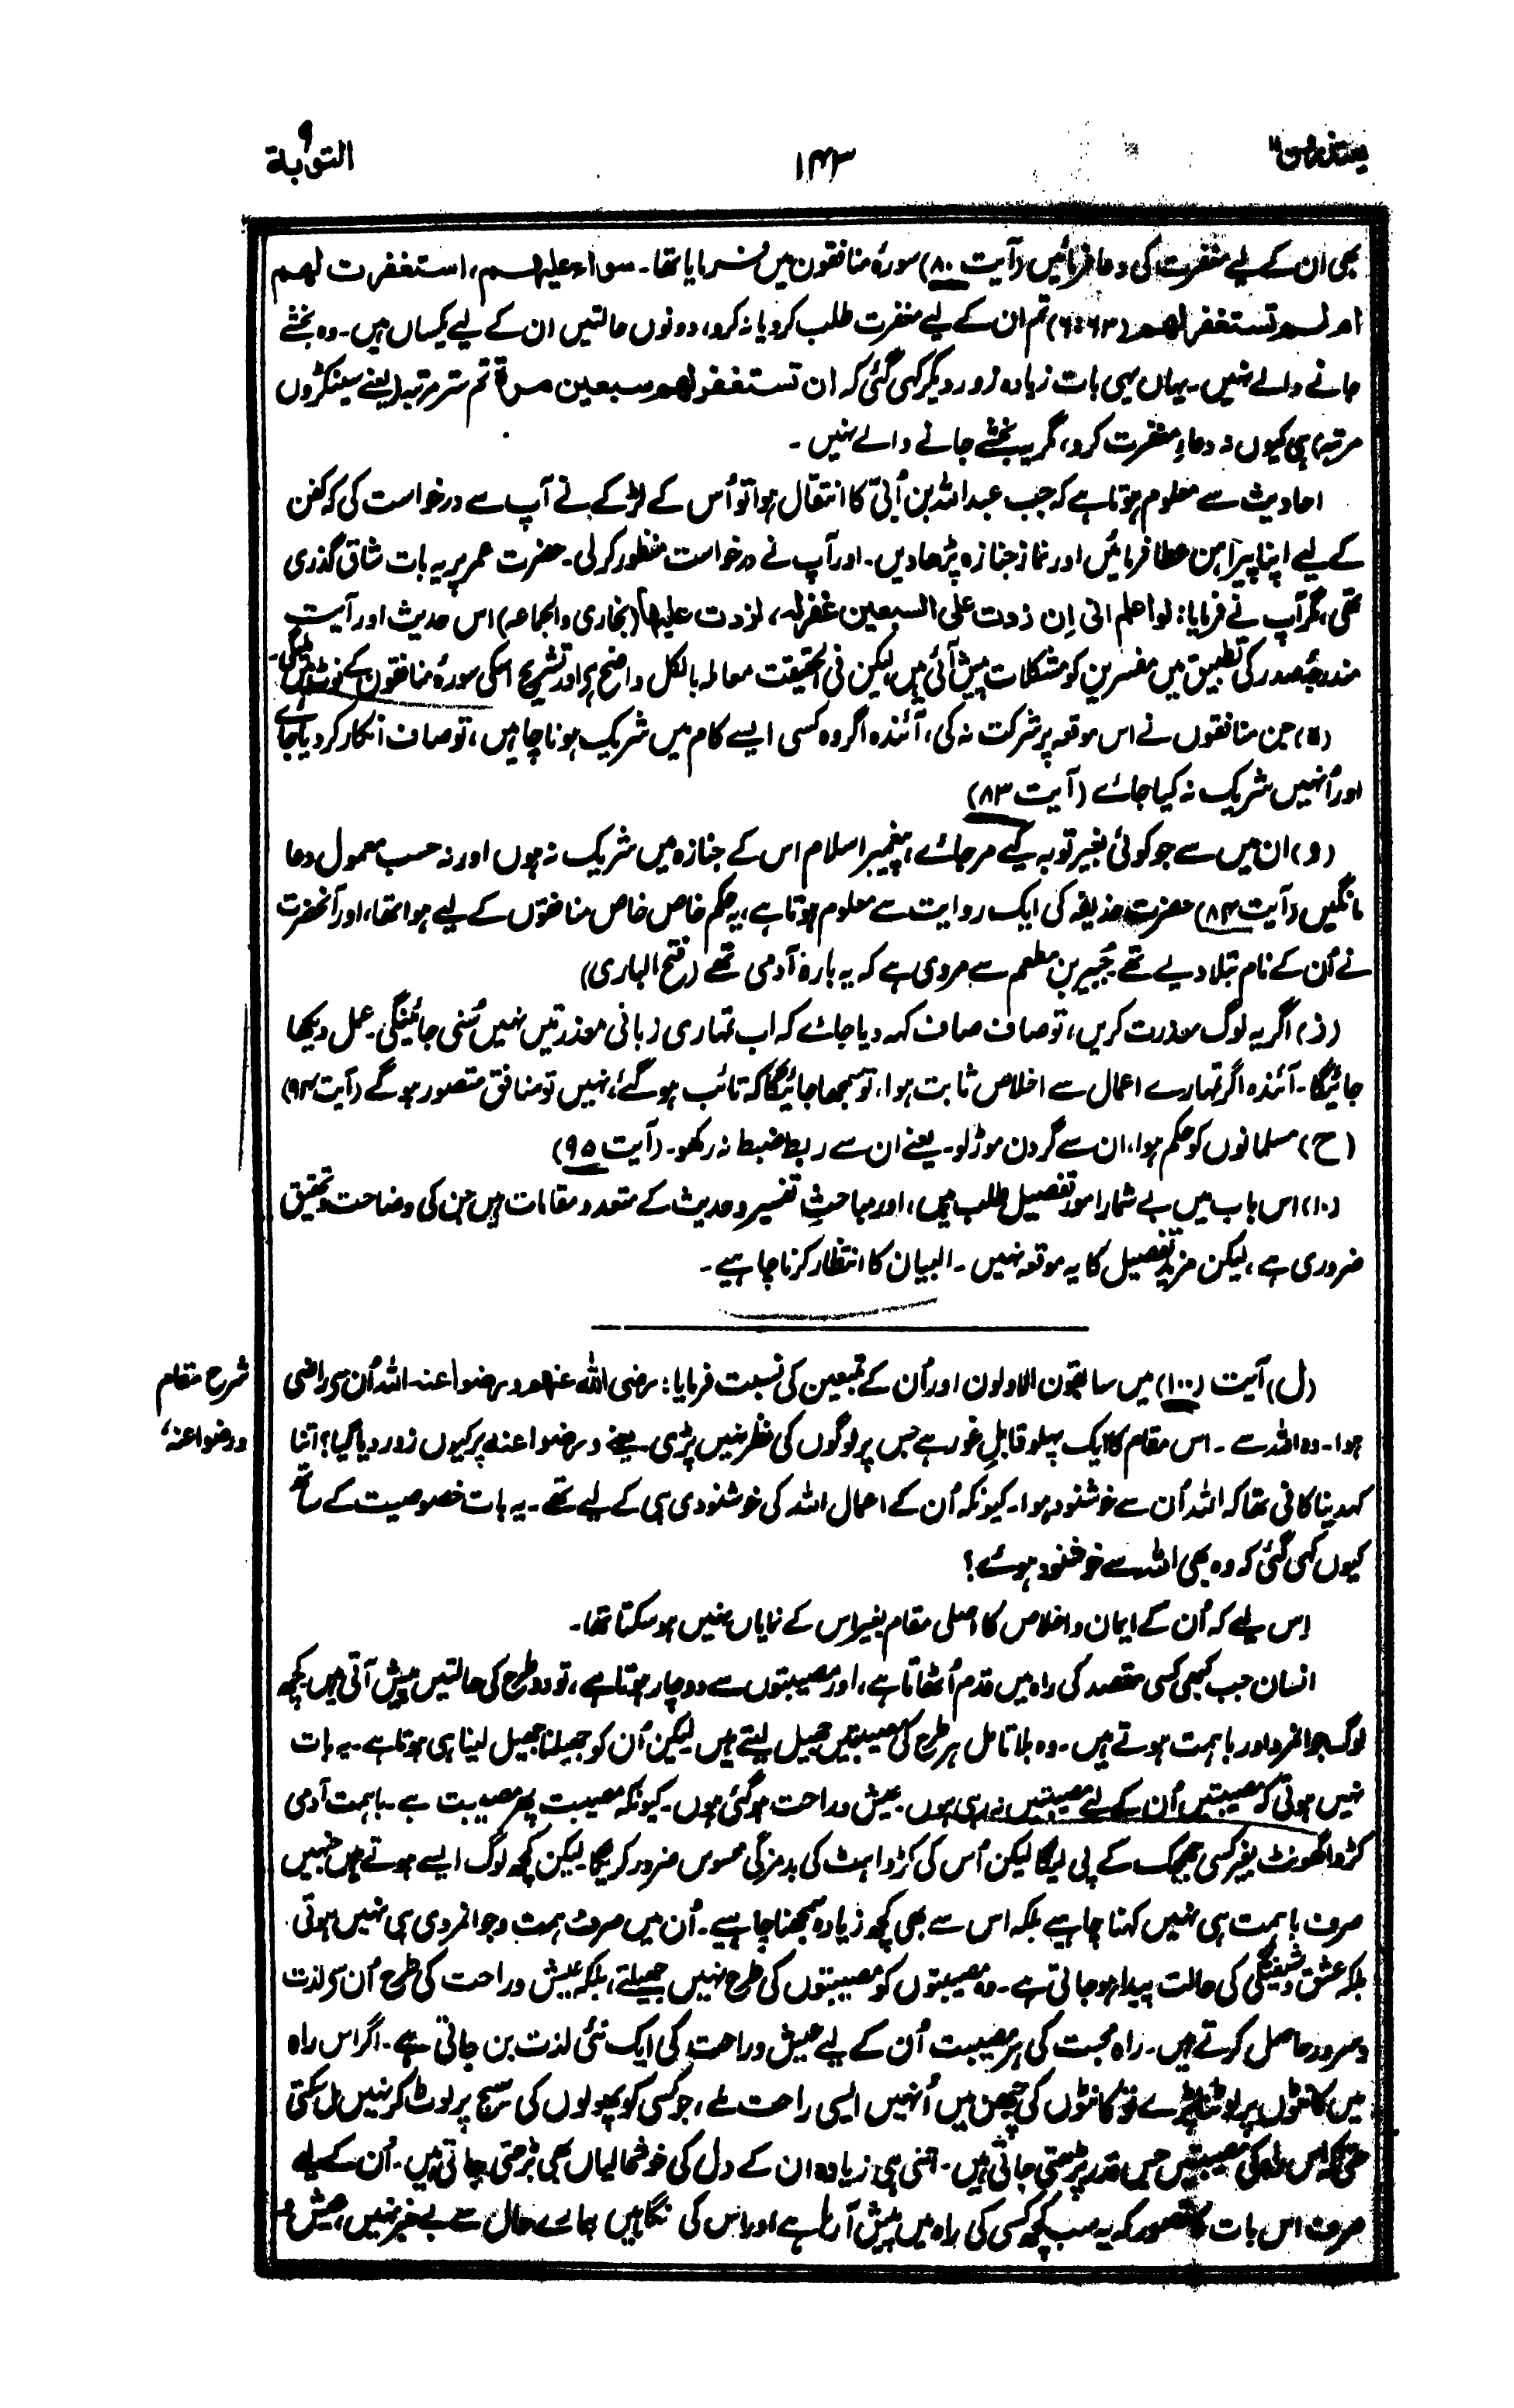 یعتذرون ۱۱
۱۴۳
التوبة ۹
بھی ان کے لیے مغفرت کی دعا فرمائیں (آیت ۸۰) سورۂ منافقون میں فرمایا تھا۔ سواء علیہم، استغفرت لھم
ام لم تستغفر لھم (۶:۶۳) تم ان کے لیے مغفرت طلب کرو یا نہ کرو، دونوں حالتیں ان کے لیے یکساں ہیں۔ وہ بخشے
جانے والے نہیں۔ یہاں یہی بات زیادہ زور دیکر کہی گئی کہ ان تستغفر لھم سبعین مرة تم ستر مرتبہ (یعنے سینکڑوں
مرتبہ) ہی کیوں نہ دعاءِ مغفرت کرو، مگر یہ بخشے جانے والے نہیں۔
احادیث سے معلوم ہوتا ہے کہ جب عبداللہ بن اُبیّ کا انتقال ہوا تو اُس کے لڑکے نے آپ سے درخواست کی کہ کفن
کے لیے اپنا پیراہن عطا فرمائیں اور نماز جنازہ پڑھا دیں۔ اور آپ نے درخواست منظور کر لی۔ حضرت عمر پر یہ بات شاق گذری
تھی، مگر آپ نے فرمایا: لو اعلم انی اِن زدت علی السبعین غفر لہ، لزدت علیھا (بخاری والجماعہ) اس حدیث اور آیت
مندرجۂ صدر کی تطبیق میں مفسرین کو مشکلات پیش آئی ہیں، لیکن فی الحقیقت معاملہ بالکل واضح ہے اور تشریح اسکی سورۂ منافقون کے نوٹ میں ملیگی۔
(ہ) جن منافقوں نے اس موقعہ پر شرکت نہ کی، آئندہ اگر وہ کسی ایسے کام میں شریک ہونا چاہیں، تو صاف انکار کر دیا جائے
اور اُنہیں شریک نہ کیا جائے (آیت ۸۳)
(و) ان میں سے جو کوئی بغیر توبہ کیے مر جائے، پیغمبر اسلام اس کے جنازہ میں شریک نہ ہوں اور نہ حسب معمول دعا
مانگیں (آیت ۸۴) حضرت حذیفہ کی ایک روایت سے معلوم ہوتا ہے، یہ حکم خاص خاص منافقوں کے لیے ہوا تھا، اور آنحضرت
نے اُن کے نام بتلا دیے تھے جُبیر بن مطعم سے مروی ہے کہ یہ بارہ آدمی تھے (فتح الباری)
(ز) اگر یہ لوگ معذرت کریں، تو صاف صاف کہہ دیا جائے کہ اب تمہاری زبانی معذرتیں نہیں سُنی جائینگی۔ عمل دیکھا
جائیگا۔ آئندہ اگر تمہارے اعمال سے اخلاص ثابت ہوا، تو سمجھا جائیگا کہ تائب ہو گئے، نہیں تو منافق متصور ہو گے (آیت ۹۴)
(ح) مسلمانوں کو حکم ہوا، ان سے گردن موڑ لو۔ یعنے ان سے ربط ضبط نہ رکھو۔ (آیت ۹۵)
(۱۰) اس باب میں بے شمار امور تفصیل طلب ہیں، اور مباحثِ تفسیر و حدیث کے متعدد مقامات ہیں جن کی وضاحت و تحقیق
ضروری ہے، لیکن مزید تفصیل کا یہ موقعہ نہیں۔ البیان کا انتظار کرنا چاہیے۔
شرح مقام
ورضوا عنہ،
(ل) آیت (۱۰۰) میں سابقون الاولون اور اُن کے متبعین کی نسبت فرمایا: رضی اللہ عنھم ورضوا عنہ۔ اللہ اُن سے راضی
ہوا۔ وہ اللہ سے۔ اس مقام کا ایک پہلو قابلِ غور ہے جس پر لوگوں کی نظر نہیں پڑی۔ یعنے ورضوا عنہ پر کیوں زور دیا گیا؟ اتنا
کہدینا کافی تھا کہ اللہ اُن سے خوشنود ہوا۔ کیونکہ اُن کے اعمال اللہ کی خوشنودی ہی کے لیے تھے۔ یہ بات خصوصیت کے ساتھ
کیوں کہی گئی کہ وہ بھی اللہ سے خوشنود ہوئے؟
اِس لیے کہ اُن کے ایمان و اخلاص کا اصلی مقام بغیر اس کے نمایاں نہیں ہو سکتا تھا۔
انسان جب کبھی کسی مقصد کی راہ میں قدم اُٹھاتا ہے، اور مصیبتوں سے دوچار ہوتا ہے، تو دو طرح کی حالتیں پیش آتی ہیں۔ کچھ
لوگ جوانمرد اور باہمت ہوتے ہیں۔ وہ بلا تامل ہر طرح کی مصیبتیں جھیل لیتے ہیں لیکن اُن کو جھیلنا جھیل لینا ہی ہوتا ہے۔ یہ بات
نہیں ہوتی کہ مصیبتیں اُن کے لئے مصیبتیں نہ رہی ہوں۔ عیش و راحت ہو گئی ہوں۔ کیونکہ مصیبت پھر مصیبت ہے۔ باہمت آدمی
کڑوا گھونٹ بغیر کسی جھجک کے پی لیگا لیکن اُس کی کڑواہٹ کی بدمزگی محسوس ضرور کریگا۔ لیکن کچھ لوگ ایسے ہوتے ہیں جنہیں
صرف باہمت ہی نہیں کہنا چاہیے بلکہ اس سے بھی کچھ زیادہ سمجھنا چاہیے۔ اُن میں صرف ہمت وجوانمردی ہی نہیں ہوتی
بلکہ عشق و شیفتگی کی حالت پیدا ہو جاتی ہے۔ وہ مصیبتوں کو مصیبتوں کی طرح نہیں جھیلتے، بلکہ عیش و راحت کی طرح اُن سے لذت
و سرور حاصل کرتے ہیں۔ راہ محبت کی ہر مصیبت اُن کے لیے عیش و راحت کی ایک نئی لذت بن جاتی ہے۔ اگر اس راہ
میں کانٹوں پر لوٹنا پڑے تو کانٹوں کی چبھن میں اُنہیں ایسی راحت ملے، جو کسی کو پھولوں کی سیج پر لوٹ کر نہیں مل سکتی
حتی کہ اس راہ کی مصیبتیں جس قدر بڑھتی جاتی ہیں۔ اتنی ہی زیادہ ان کے دل کی خوشحالیاں بھی بڑھتی جاتی ہیں۔ اُن کے لیے
صرف اس بات کا تصور کہ یہ سب کچھ کسی کی راہ میں پیش آ رہا ہے اور اس کی نگاہیں ہمارے حال سے بے خبر نہیں، عیش و